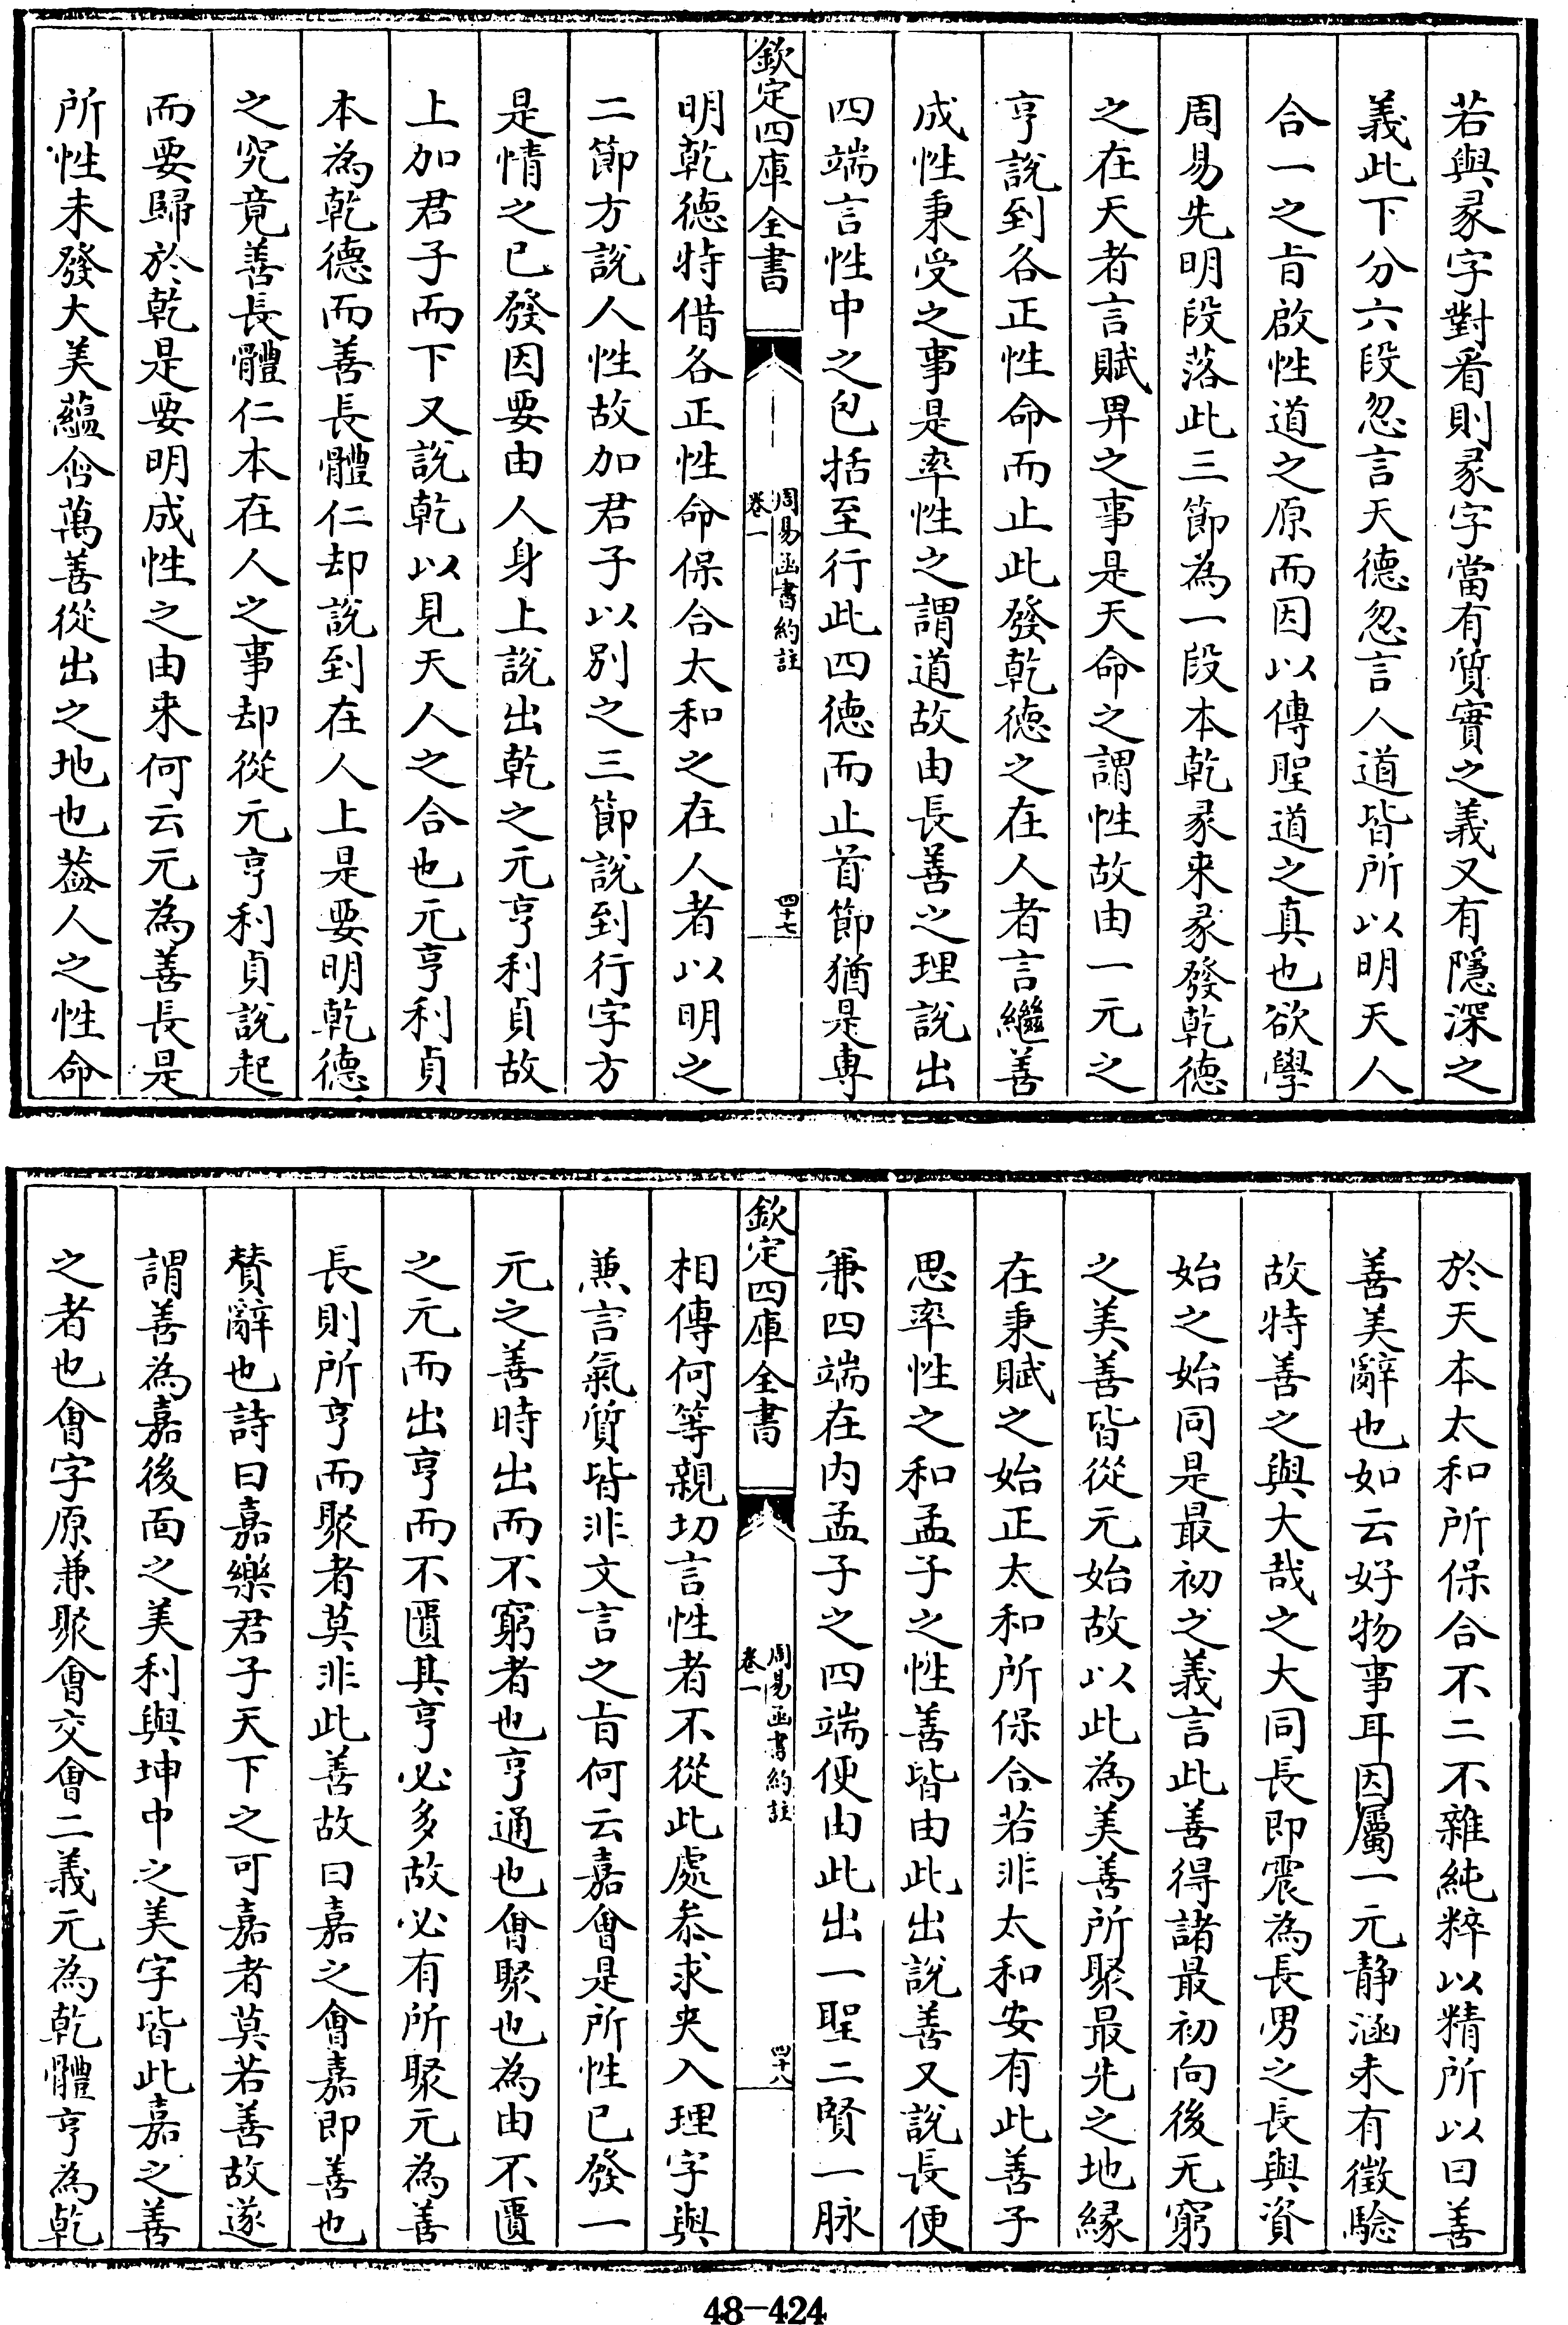 若與彖字對看則彖字當有質實之義又有隱深之
義此下分六段忽言天德忽言人道皆所以明天人
合一之旨啟性道之原而因以傳聖道之真也欲學
周易先明段落此三節為一段本乾彖來彖發乾德
之在天者言賦畀之事是天命之謂性故由一元之
亨說到各正性命而止此發乾德之在人者言繼善
成性秉受之事是率性之謂道故由長善之理說出
四端言性中之包括至行此四德而止首節猶是專
欽定四庫全書
周易函書約註
卷一
四十七
明乾德特借各正性命保合太和之在人者以明之
二節方說人性故加君子以別之三節說到行字方
是情之已發因要由人身上說出乾之元亨利貞故
上加君子而下又說乾以見天人之合也元亨利貞
本為乾德而善長體仁却說到在人上是要明乾德
之究竟善長體仁本在人之事却從元亨利貞說起
而要歸於乾是要明成性之由来何云元為善長是
所性未發大美蘊含萬善從出之地也葢人之性命
於天本太和所保合不二不雜純粹以精所以曰善
善美辭也如云好物事耳因屬一元静涵未有徵驗
故特善之與大哉之大同長即震為長男之長與資
始之始同是最初之義言此善得諸最初向後无窮
之美善皆從元始故以此為美善所聚最先之地緣
在秉賦之始正太和所保合若非太和安有此善子
思率性之和孟子之性善皆由此出說善又說長便
兼四端在内孟子之四端便由此出一聖二賢一脉
欽定四庫全書
周易函書約註
卷一
四十八
相傳何等親切言性者不從此處叅求夾入理字與
兼言氣質皆非文言之旨何云嘉會是所性已發一
元之善時出而不窮者也亨通也會聚也為由不匱
之元而出亨而不匱其亨必多故必有所聚元為善
長則所亨而聚者莫非此善故曰嘉之會嘉即善也
贊辭也詩曰嘉樂君子天下之可嘉者莫若善故遂
謂善為嘉後面之美利與坤中之美字皆此嘉之善
之者也會字原兼聚會交會二義元為乾體亨為乾
48-424